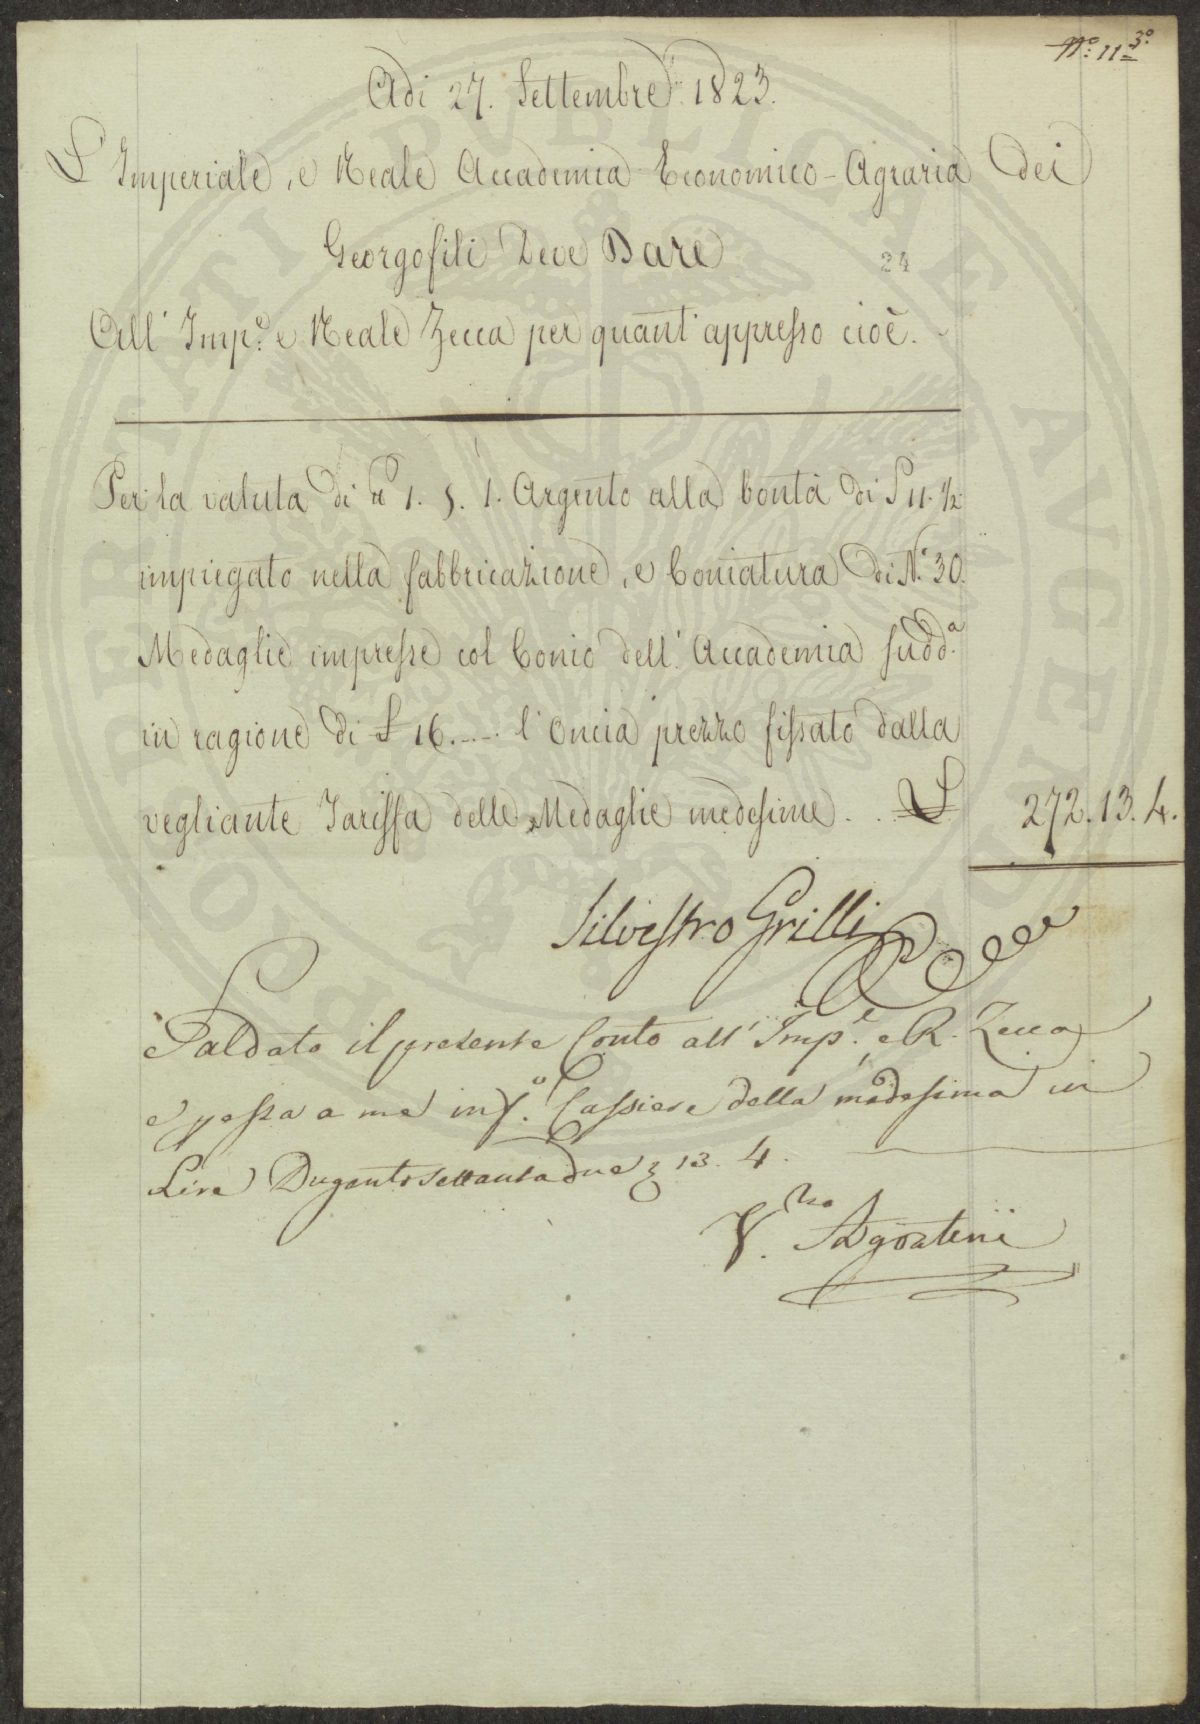 N.º 11 = 3º
Adi 27. Settembre 1823.
L'Imperiale, e Reale Accademia Economico-Agraria dei
Georgofili Deve Dare
24
All' Imp.e e Reale Zecca per quant' appresso cioè.
Per la valuta di 1. 5. 1. Argento alla bontà di 11. 1/2
impiegato nella fabbricazione, e Coniatura di N.º 30.
Medaglie impresse col Conio dell' Accademia sudd.a
in ragione di £ 16. l'Oncia prezzo fissato dalla
vegliante Tariffa delle Medaglie medesime . . £ 272.13.4.
Silvestro Grilli
Saldato il presente Conto all' Imp.e, e R. Zecca
e p essa a me inf.o Cassiere della medesima in
Lire Dugento settanta due 13. 4.
V. Agostini
PROSPERITATI PVBLICAE AVGENDAE